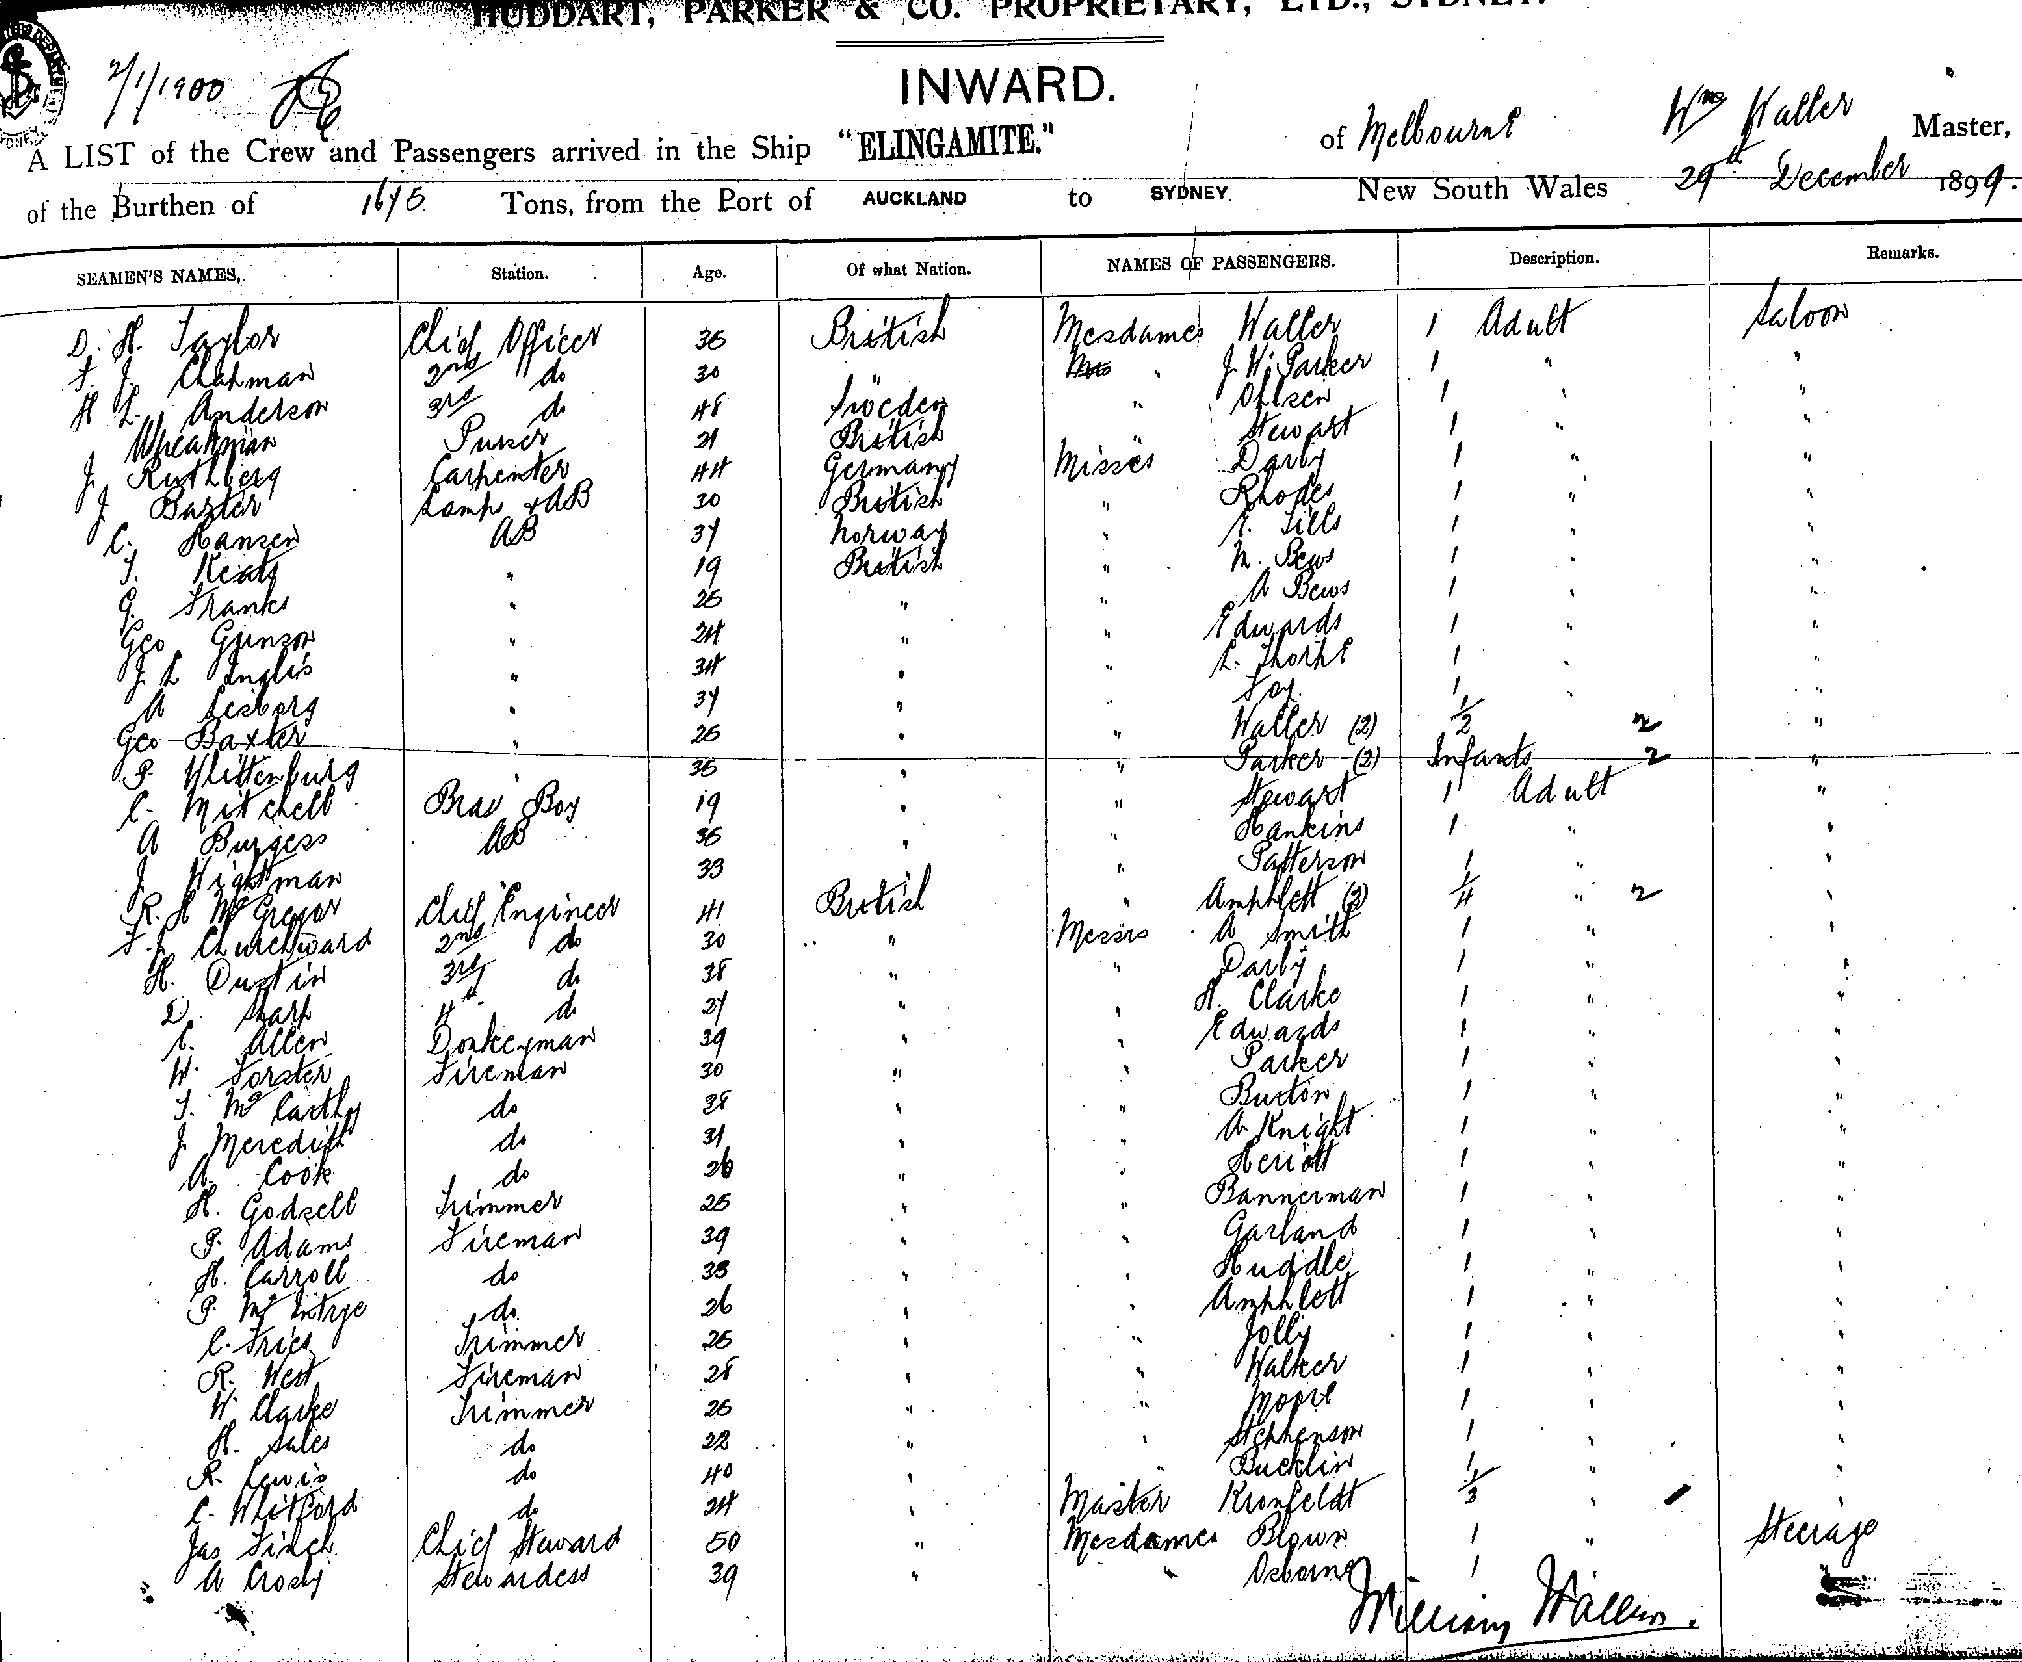 HUDDART, PARKER & CO. PROPRIETARY, LTD., SYDNEY.
2/1/1900
INWARD.
Wm Waller Master,
A LIST of the Crew and Passengers arrived in the Ship "ELINGAMITE." of Melbourne
of the Burthen of 1675 Tons, from the Port of AUCKLAND to SYDNEY New South Wales 29th December 1899.
SEAMEN'S NAMES, Station. Age. Of what Nation. NAMES OF PASSENGERS. Description. Remarks.
D. H. Taylor Chief Officer 36 British Mesdames Waller 1 Adult Saloon
F. J. Chapman 2nd do 30 " " J. W. Parker 1 " "
H L. Anderson 3rd do 48 Sweden " Ohlsen 1 " "
Wheatman Purser 21 British " Stewart 1 " "
J. Ruthberg Carpenter 44 Germany Misses Darby 1 " "
J Baxter Lamps & AB 30 British " Rhodes 1 " "
C. Hansen AB 37 Norway " Sills 1 " "
T. Keats " 19 British " M. Bews 1 " "
G. Franks " 25 " " A Bews 1 " "
Geo Gunson " 24 " " Edwards 1 " "
J. L Inglis " 34 " " L. Thorpe 1 " "
A Lisborg " 37 " " Foy 1 " "
Geo Baxter " 25 " " Waller (2) 1/2 2 "
P. Wittenburg " 35 " " Parker (2) Infants 2 "
C. Mitchell Bras Boy 19 " " Stewart 1 Adult "
A Burgess AB 36 " " Hankins 1 " "
J. Wightman 33 " Patterson 1 " "
R. H McGregor Chief Engineer 41 British " Amphlett (2) 1/4 " 2 "
F. L Churchward 2nd do 30 " Messrs A Smith 1 " "
H. Dustin 3rd do 38 " " Darby 1 " "
D. Sharp 4th do 27 " " H. Clarke 1 " "
C. Allen Donkeyman 39 " " Edwards 1 " "
W. Forster Fireman 30 " " Parker 1 " "
T. McCarthy do 28 " " Burton 1 " "
J. Meredith do 31 " " A Knight 1 " "
A Cook do 26 " " Heriott 1 " "
H. Godsell Trimmer 25 " " Bannerman 1 " "
P. Adams Fireman 39 " " Garland 1 " "
H. Carroll do 33 " " Huddle 1 " "
P. McIntyre do 26 " " Amphlett 1 " "
C. Fries Trimmer 25 " " Jolly 1 " "
R. West Fireman 28 " " Walker 1 " "
W. Clarke Trimmer 25 " " Moore 1 " "
H. Sales do 22 " " Stephenson 1 " "
R. Lewis do 40 " " Bucklin 1 " "
C. Whitford do 24 " Master Kronfeldt 1/3 " "
Jas Finch Chief Steward 50 " Mesdames Brown 1 " Steerage
A Crosby Stewardess 39 " " Osborne 1
William Waller.